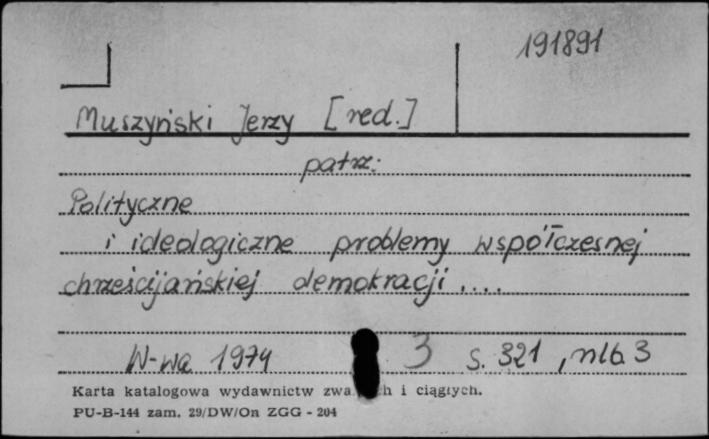 191891
Muszyński Jerzy [red.]
patrz:
Polityczne
i ideologiczne problemy współczesnej
chrześcijańskiej demokracji....
W-wa 1974 3 s. 321, nlb 3
Karta katalogowa wydawnictw i ciągłych.
PU-B-144 zam. 29/DW/On ZGG - 204